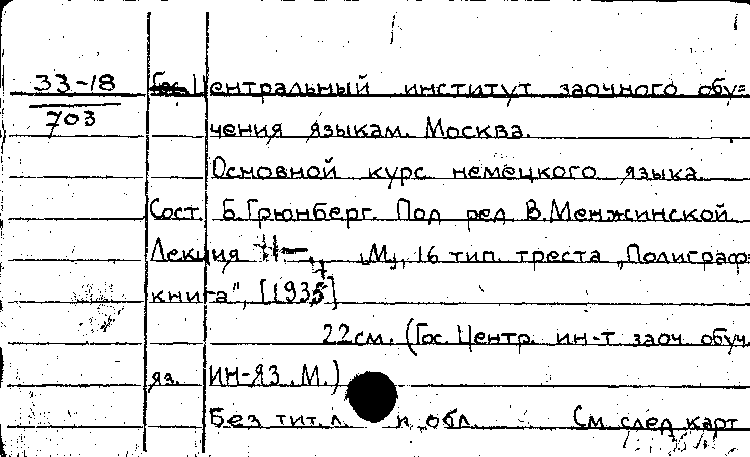 33-18
703
Центральный институт заочного обу=
чения языкам. Москва.
Основной курс немецкого языка.
Сост. Б. Грюнберг. Под ред В. Менжинской
Лекция М., 16 тип. треста „Полиграф=
книга", [1935]
22см. (Гос. Центр. ин-т заоч. обуч.
яз. ИН-ЯЗ. М.)
Без тит. л. и обл. См след карт